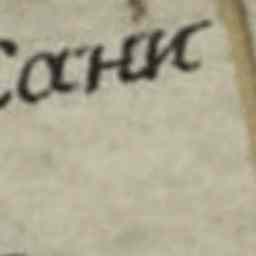 сани